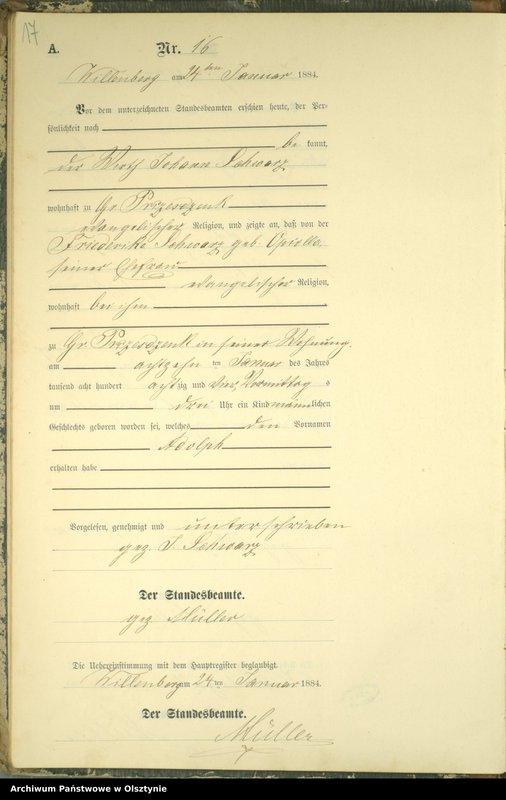 17
A. Nr. 16
Willenberg am 24ten Januar 1884.
Vor dem unterzeichneten Standesbeamten erschien heute, der Per-
sönlichkeit nach
be kannt,
der Wirth Johann Schwarz
wohnhaft zu Gr. Przesdzenk
evangelischer Religion, und zeigte an, daß von der
Friederike Schwarz geb. Opiolla,
seiner Ehefrau
evangelischer Religion,
wohnhaft bei ihm
zu Gr. Przesdzenk in seiner Wohnung,
am achtzehn ten Januar des Jahres
tausend acht hundert achtzig und vier, Vormittag s
um drei Uhr ein Kind männlichen
Geschlechts geboren worden sei, welches den Vornamen
Adolph
erhalten habe
Vorgelesen, genehmigt und unterschrieben
gez. J Schwarz
Der Standesbeamte.
gez Müller
Die Uebereinstimmung mit dem Hauptregister beglaubigt.
Willenberg am 24 ten Januar 1884.
Der Standesbeamte.
Müller
Archiwum Państwowe w Olsztynie